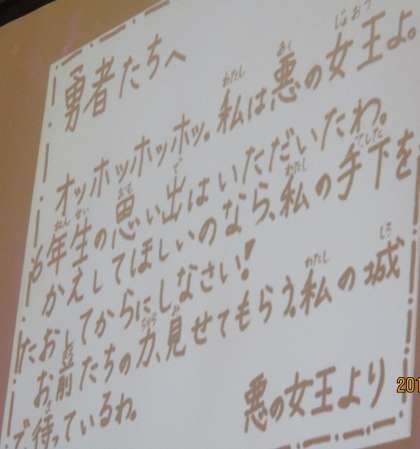 勇者たちへ
オッホッホッホッ。私は悪の女王よ。
年生の思い出はいただいたわ。
かえしてほしいのなら、私の手下を
たおしてからにしなさい!
お前たちの力、見せてもらう。私の城
で、待っているわ。
悪の女王より
201